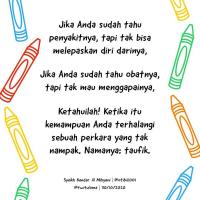 Jika Anda sudah tahu
penyakitnya, tapi tak bisa
melepaskan diri darinya,
Jika Anda sudah tahu obatnya,
tapi tak mau menggapainya,
Ketahuilah! Ketika itu
kemampuan Anda terhalangi
sebuah perkara yang tak
nampak. Namanya: taufik.
| 30/10/2020